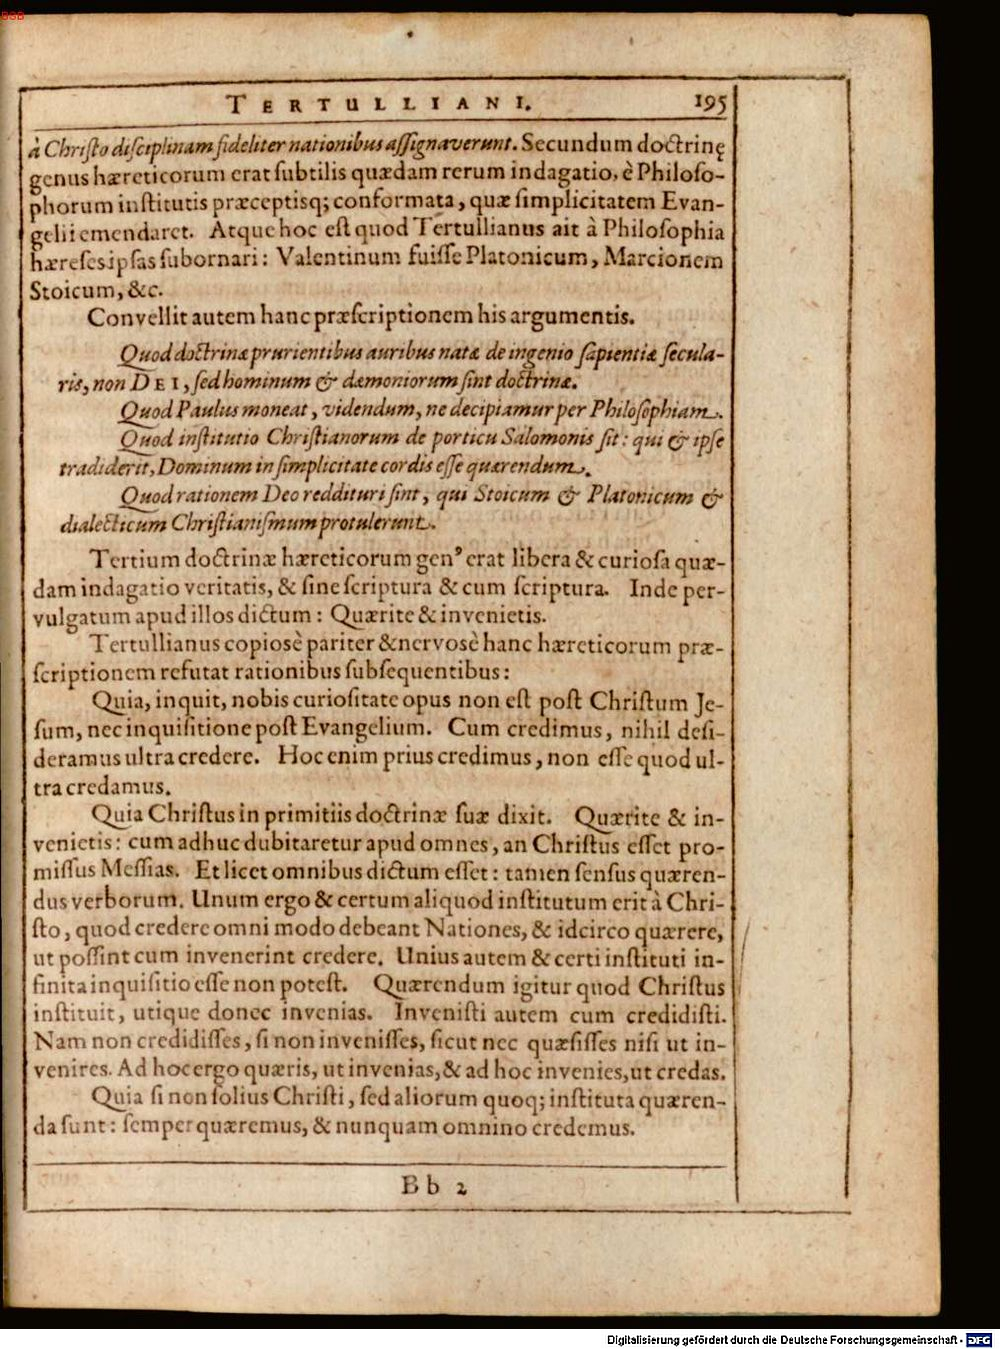 BSB
TERTULLIANI. 195
à Christo disciplinam fideliter nationibus assignaverunt. Secundum doctrinę
genus hæreticorum erat subtilis quædam rerum indagatio, è Philoso-
phorum institutis præceptisq; conformata, quæ simplicitatem Evan-
gelii emendaret. Atque hoc est quod Tertullianus ait à Philosophia
hæreses ipsas subornari: Valentinum fuisse Platonicum, Marcionem
Stoicum, &c.
Convellit autem hanc præscriptionem his argumentis.
Quod doctrinæ prurientibus auribus natæ de ingenio sapientiæ secula-
ris, non DEI, sed hominum & dæmoniorum sint doctrinæ.
Quod Paulus moneat, videndum, ne decipiamur per Philosophiam.
Quod institutio Christianorum de porticu Salomonis sit: qui & ipse
tradiderit, Dominum in simplicitate cordis esse quærendum.
Quod rationem Deo reddituri sint, qui Stoicum & Platonicum &
dialecticum Christianismum protulerunt.
Tertium doctrinæ hæreticorum genꝰ erat libera & curiosa quæ-
dam indagatio veritatis, & sine scriptura & cum scriptura. Inde per-
vulgatum apud illos dictum: Quærite & invenietis.
Tertullianus copiosè pariter & nervosè hanc hæreticorum præ-
scriptionem refutat rationibus subsequentibus:
Quia, inquit, nobis curiositate opus non est post Christum Je-
sum, nec inquisitione post Evangelium. Cum credimus, nihil desi-
deramus ultra credere. Hoc enim prius credimus, non esse quod ul-
tra credamus.
Quia Christus in primitiis doctrinæ suæ dixit. Quærite & in-
venietis: cum adhuc dubitaretur apud omnes, an Christus esset pro-
missus Messias. Et licet omnibus dictum esset: tamen sensus quæren-
dus verborum. Unum ergo & certum aliquod institutum erit à Chri-
sto, quod credere omni modo debeant Nationes, & idcirco quærere,
ut possint cum invenerint credere. Unius autem & certi instituti in-
finita inquisitio esse non potest. Quærendum igitur quod Christus
instituit, utique donec invenias. Invenisti autem cum credidisti.
Nam non credidisses, si non invenisses, sicut nec quæsisses nisi ut in-
venires. Ad hoc ergo quæris, ut invenias, & ad hoc invenies, ut credas.
Quia si non solius Christi, sed aliorum quoq; instituta quæren-
da sunt: semper quæremus, & nunquam omnino credemus.
Bb 2
Digitalisierung gefördert durch die Deutsche Forschungsgemeinschaft - DFG